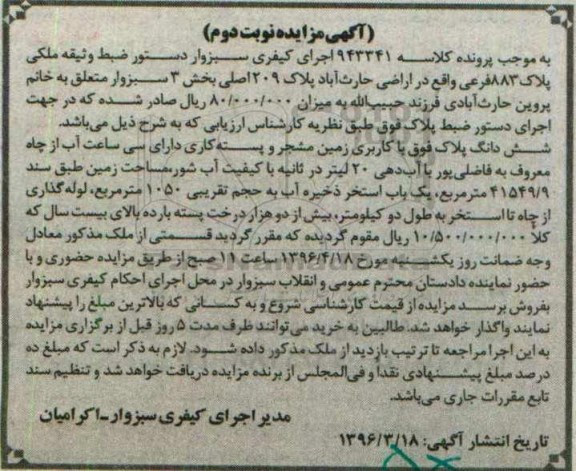 (آگهی مزایده نوبت دوم)
به موجب پرونده کلاسه ۹۴۳۳۴۱ اجرای کیفری سبزوار دستور ضبط وثیقه ملکی
پلاک ۸۸۳فرعی واقع در اراضی حارث‌آباد پلاک ۲۰۹اصلی بخش ۳ سبزوار متعلق به خانم
پروین حارث‌آبادی فرزند حبیب‌الله به میزان ۸۰/۰۰۰/۰۰۰ ریال صادر شده که در جهت
اجرای دستور ضبط پلاک فوق طبق نظریه کارشناس ارزیابی که به شرح ذیل می‌باشد.
شش دانگ پلاک فوق با کاربری زمین مشجر و پسته‌کاری دارای سی ساعت آب از چاه
معروف به فاضلی‌پور با آب‌دهی ۲۰ لیتر در ثانیه با کیفیت آب شور،مساحت زمین طبق سند
۴۱۵۴۹/۹ مترمربع، یک باب استخر ذخیره آب به حجم تقریبی ۱۰۵۰ مترمربع، لوله‌گذاری
از چاه تا استخر به طول دو کیلومتر، بیش از دو هزار درخت پسته بارده بالای بیست سال که
کلاً ۱۰/۵۰۰/۰۰۰/۰۰۰ ریال مقوم گردیده که مقرر گردید قسمتی از ملک مذکور معادل
وجه ضمانت روز یکشنبه مورخ ۱۳۹۶/۴/۱۸ ساعت ۱۱ صبح از طریق مزایده حضوری و با
حضور نماینده دادستان محترم عمومی و انقلاب سبزوار در محل اجرای احکام کیفری سبزوار
بفروش برسد مزایده از قیمت کارشناسی شروع و به کسانی که بالاترین مبلغ را پیشنهاد
نمایند واگذار خواهد شد. طالبین به خرید می‌توانند ظرف مدت ۵ روز قبل از برگزاری مزایده
به این اجرا مراجعه تا ترتیب بازدید از ملک مذکور داده شود. لازم به ذکر است که مبلغ ده
درصد مبلغ پیشنهادی نقداً و فی‌المجلس از برنده مزایده دریافت خواهد شد و تنظیم سند
تابع مقررات جاری می‌باشد.
مدیر اجرای کیفری سبزوار ـ اکرامیان
تاریخ انتشار آگهی: ۱۳۹۶/۳/۱۸